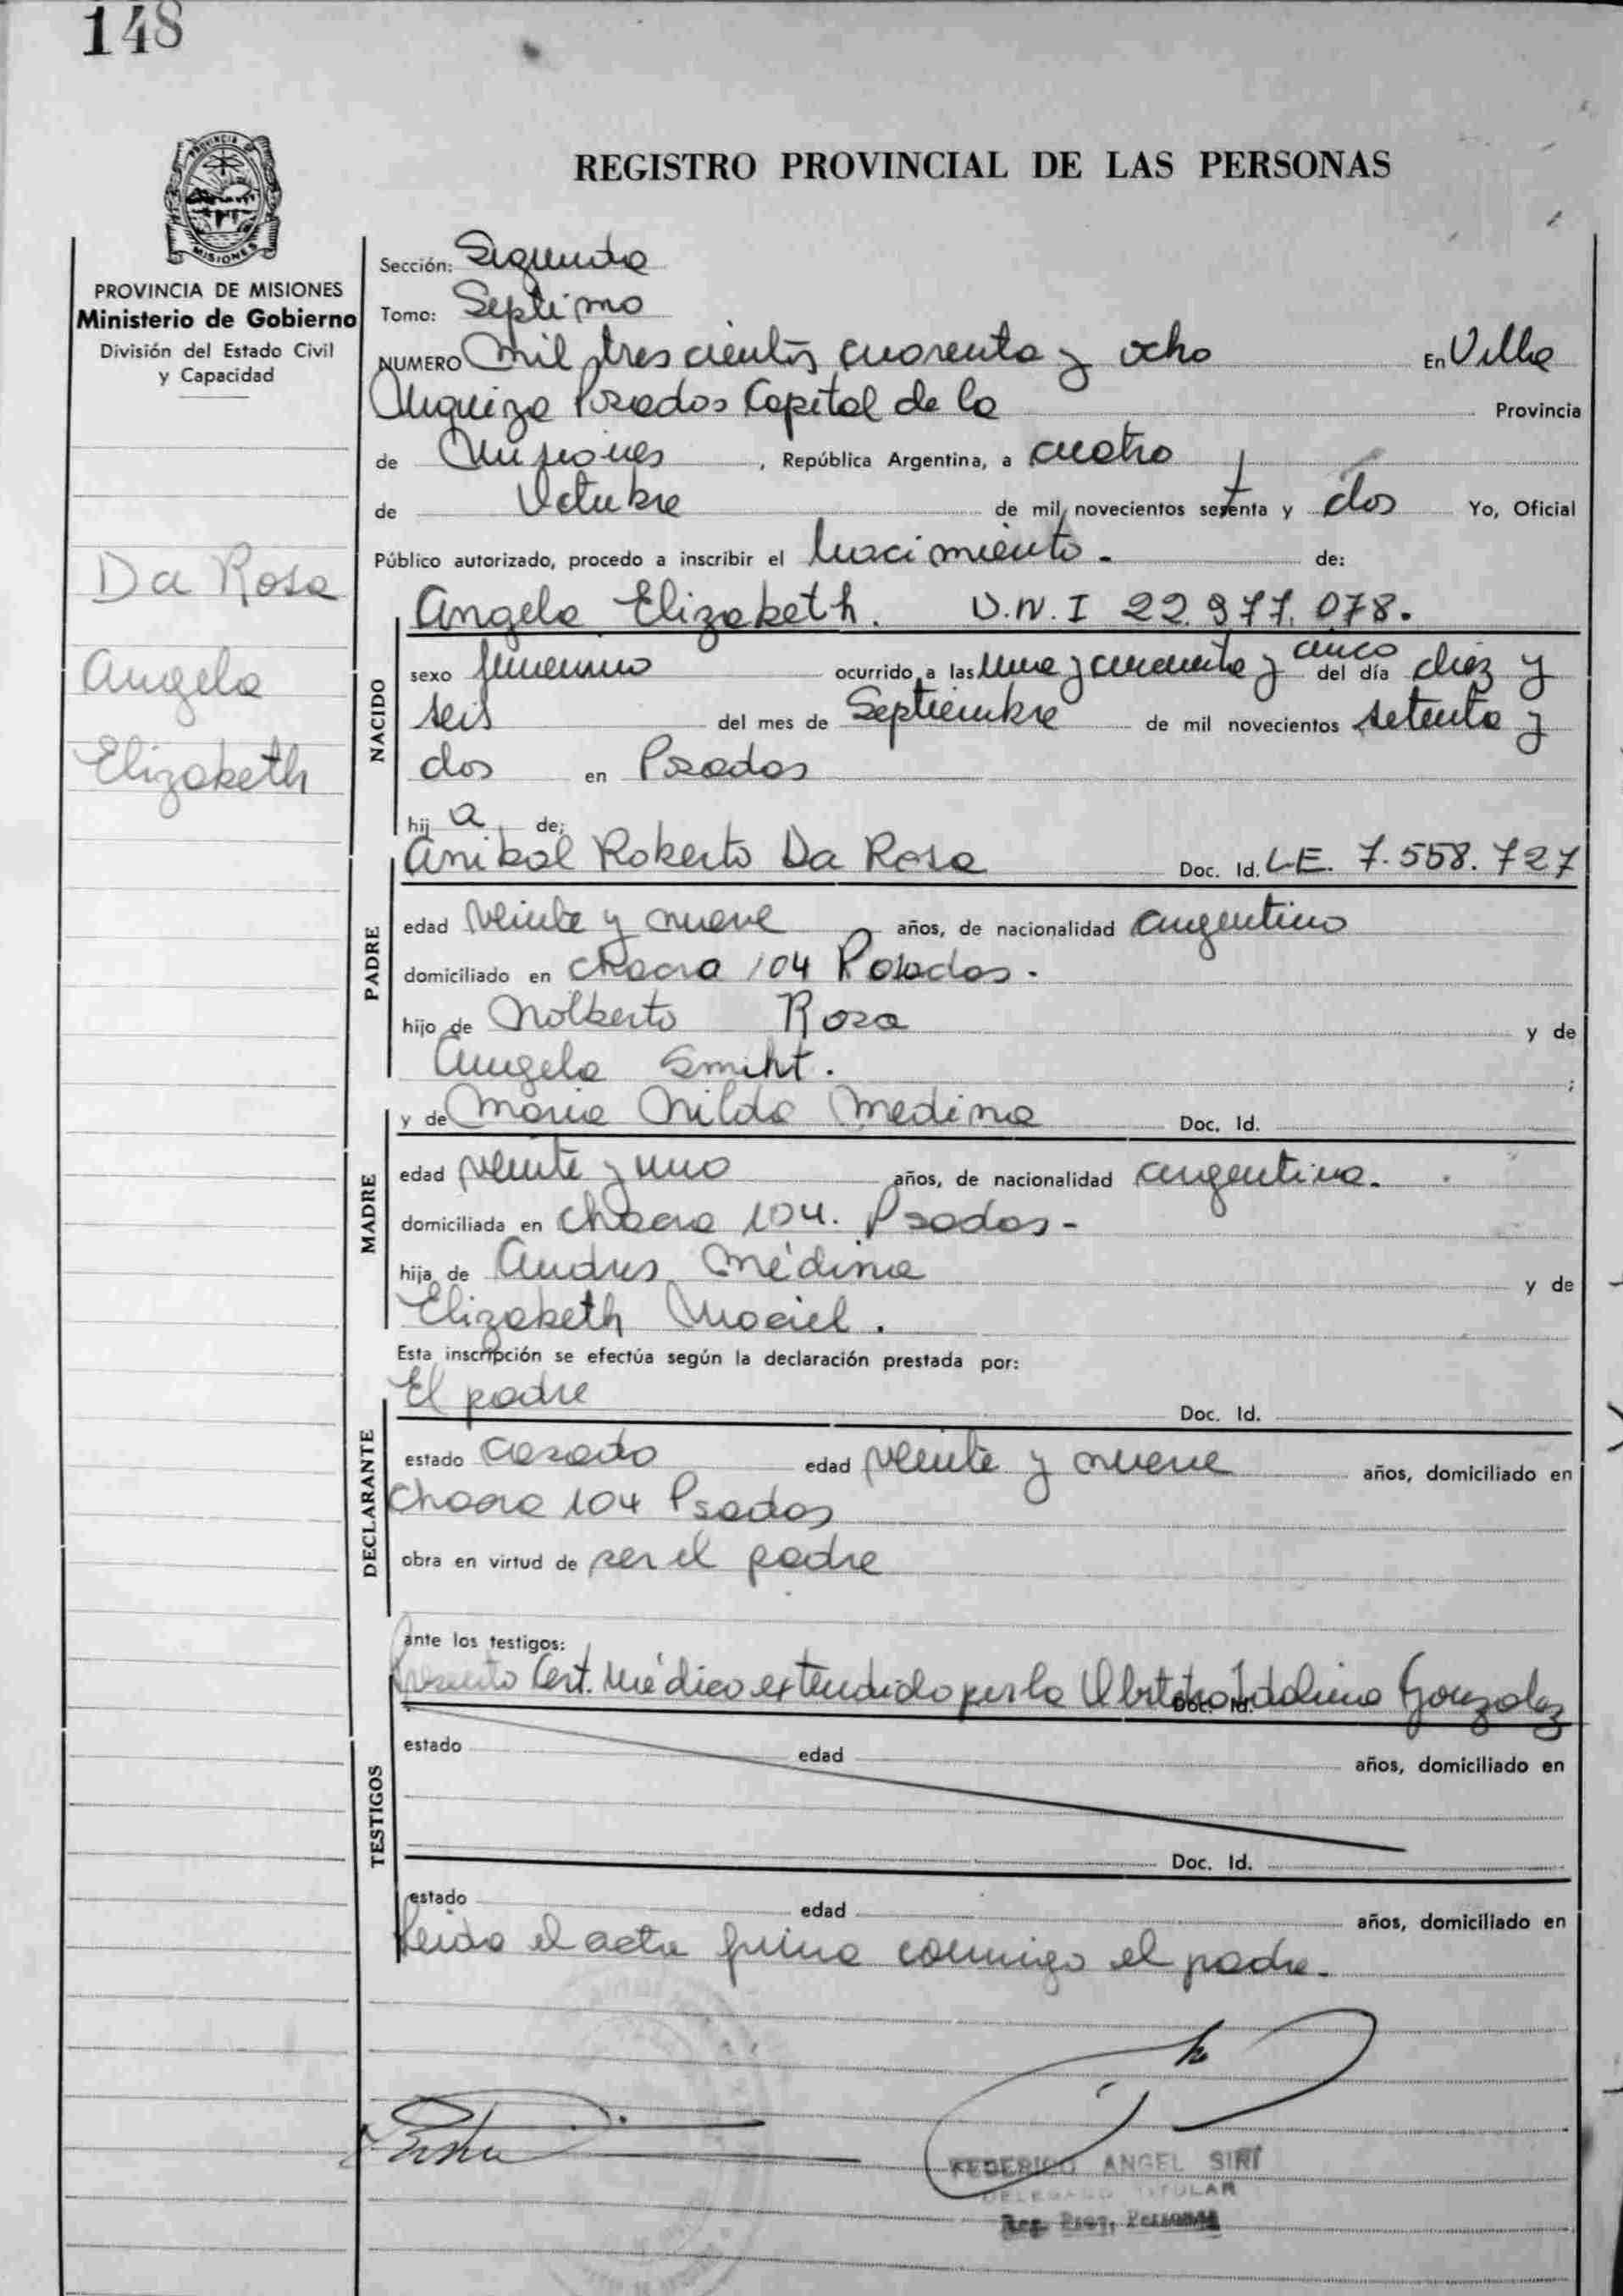 148
PROVINCIA DE
MISIONES
REGISTRO PROVINCIAL DE LAS PERSONAS
PROVINCIA DE MISIONES
Ministerio de Gobierno
División del Estado Civil
y Capacidad
Da Rosa
Angela
Elizabeth
Sección: Segunda
Tomo: Septimo
NUMERO Mil trescientos cuarenta y ocho En Villa
Urquiza Posadas Capital de la Provincia
de Misiones, República Argentina, a cuatro
de Octubre de mil novecientos setenta y dos Yo, Oficial
Público autorizado, procedo a inscribir el Nacimiento. de:
Angela Elizabeth. D.N.I 22.977.078.
NACIDO
sexo femenino ocurrido a las Una y cincuenta y cinco del día diez y
seis del mes de Septiembre de mil novecientos setenta y
dos en Posadas
hij a de:
PADRE
Anibal Roberto Da Rosa Doc. Id. LE. 7.558.727
edad veinte y nueve años, de nacionalidad argentino
domiciliado en chacra 104 Posadas.
hijo de Nolberto Rosa y de
Angela Smiht. ;
MADRE
y de Maria Nilda Medina Doc. Id.
edad veinte y uno años, de nacionalidad argentina.
domiciliada en chacra 104. Posadas-
hija de Andres Médina y de
Elizabeth Maciel.
Esta inscripción se efectúa según la declaración prestada por:
DECLARANTE
El padre Doc. Id.
estado casado edad veinte y nueve años, domiciliado en
Chacra 104 Psadas
obra en virtud de ser el padre
ante los testigos:
TESTIGOS
Presento Cert. Médico extendido por la Obstetra Idalina Gonzalez Doc. Id.
estado edad años, domiciliado en
Doc. Id.
estado edad años, domiciliado en
Leida el acta firma conmigo el padre.
FEDERICO ANGEL SIRI
DELEGADO TITULAR
Reg. Prov. Personas